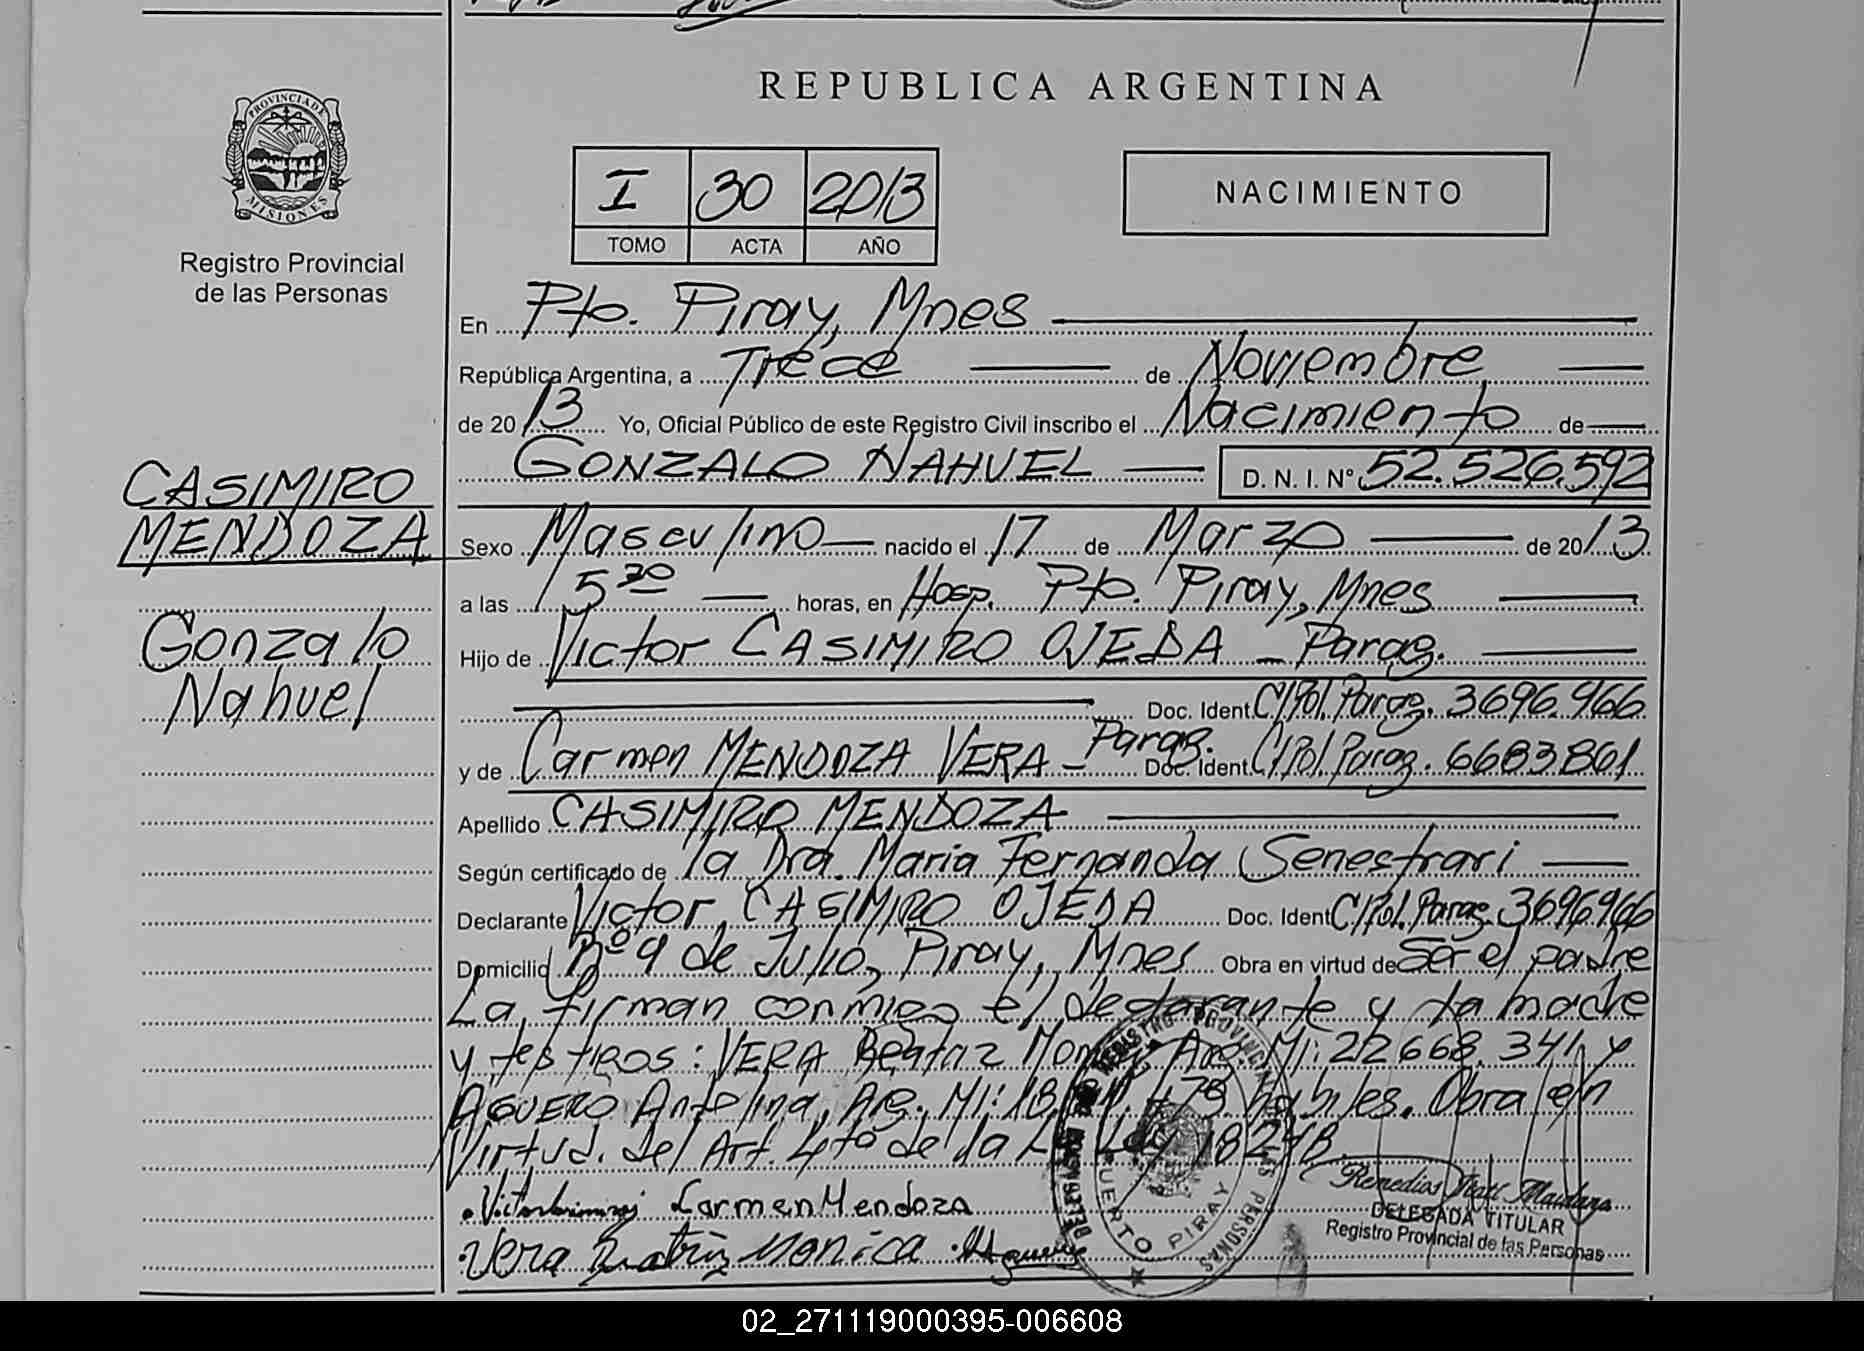 REPUBLICA ARGENTINA
PROVINCIA DE
MISIONES
Registro Provincial
de las Personas
I 30 2013
TOMO ACTA AÑO
NACIMIENTO
En Pto. Piray, Mnes
República Argentina, a Trece de Noviembre
de 2013 Yo, Oficial Público de este Registro Civil inscribo el Nacimiento de
GONZALO NAHUEL D. N. I. Nº 52.526.592
CASIMIRO
MENDOZA
Gonzalo
Nahuel
Sexo Masculino nacido el 17 de Marzo de 2013
a las 15 30 horas, en Hosp. Pto. Piray, Mnes
Hijo de Victor CASIMIRO OJEDA - Parag.
Doc. Ident. C/Pol. Parag. 3696.966
y de Carmen MENDOZA VERA - Parag. Doc. Ident. C/Pol. Parag. 6683.861
Apellido CASIMIRO MENDOZA
Según certificado de la Dra. Maria Fernanda Senestrari
Declarante Victor CASIMIRO OJEDA Doc. Ident C/Pol. Parag. 3696966
Domicilio Bº 9 de Julio, Piray, Mnes Obra en virtud de Ser el padre
La firman conmigo el declarante y la madre
y testigos: VERA Beatriz Arg. MI: 22668.341 y
AGUERO Antolina, Arg. MI: 18. 473 habiles. Obra en
Virtud del Art. 4to de la Ley 18248.
Carmen Mendoza
Vera Beatriz Monica
DELEGACION REGISTRO PROVINCIAL DE LAS PERSONAS
PUERTO PIRAY
Remedios Maidana
DELEGADA TITULAR
Registro Provincial de las Personas
02_271119000395-006608